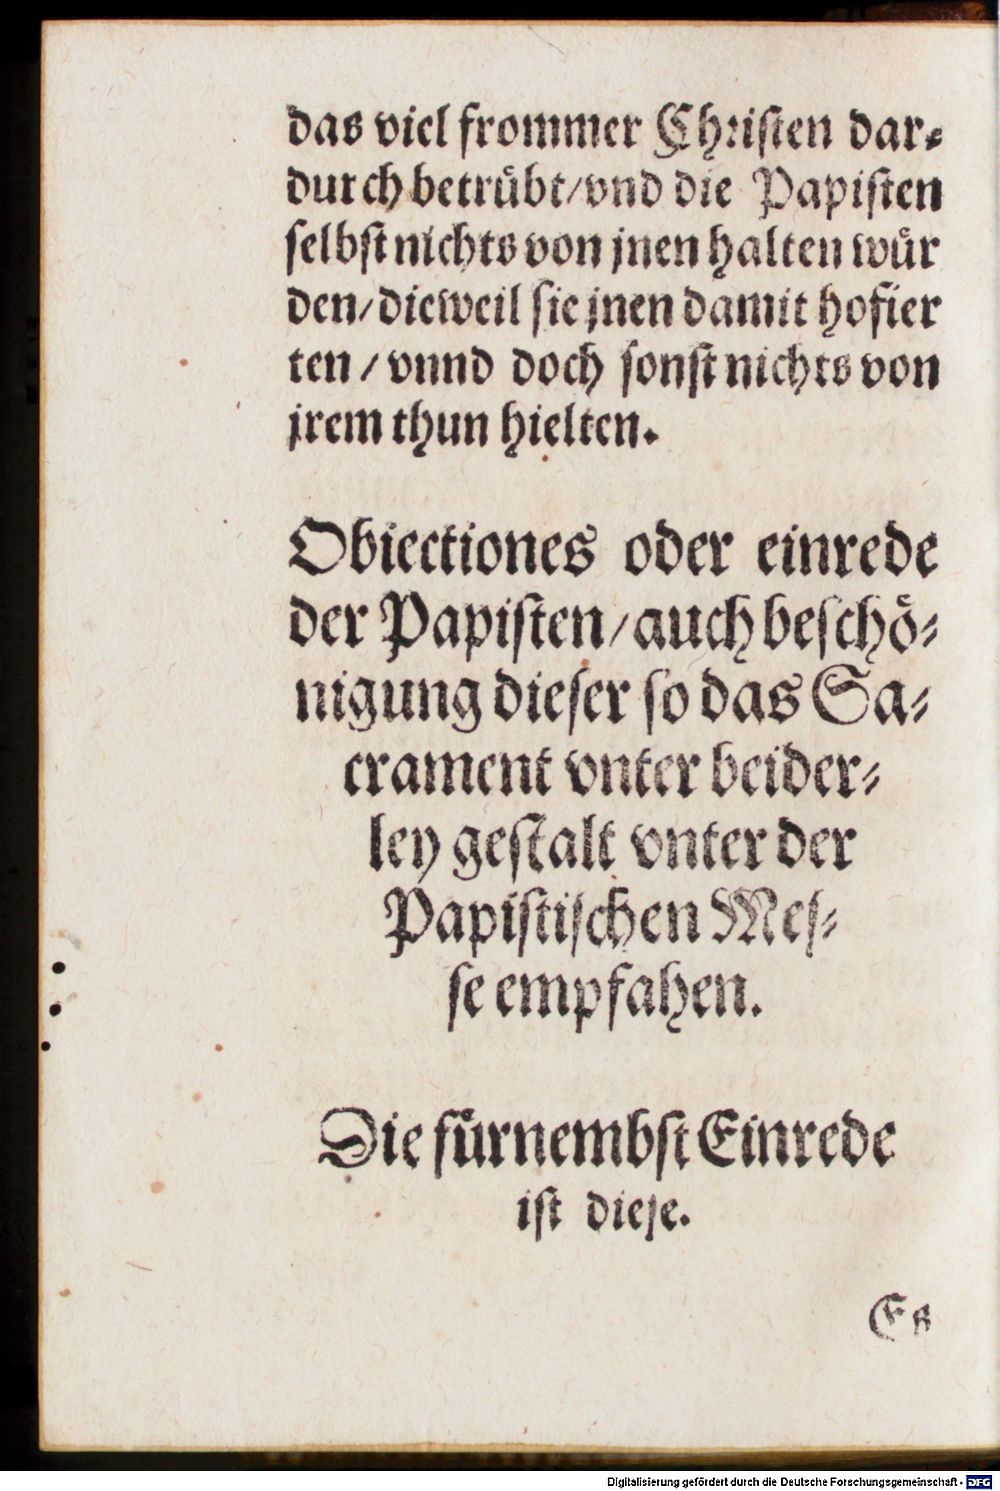 das viel frommer Christen dar-
durch betrübt/vnd die Papisten
selbst nichts von jnen halten wür
den/dieweil sie jnen damit hofier
ten / vnnd doch sonst nichts von
jrem thun hielten.
Obiectiones oder einrede
der Papisten/auch beschö-
nigung dieser so das Sa-
crament vnter beider-
ley gestalt vnter der
Papistischen Mes-
se empfahen.
Die fürnembst Einrede
ist diese.
Es
Digitalisierung gefördert durch die Deutsche Forschungsgemeinschaft - DFG